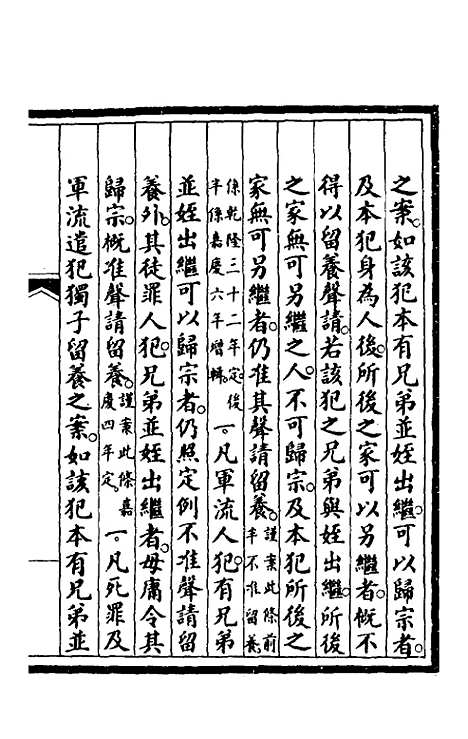 之案。如該犯本有兄弟並姪出繼。可以歸宗者。
及本犯身為人後。所後之家可以另繼者。概不
得以留養聲請。若該犯之兄弟與姪出繼。所後
之家無可另繼之人。不可歸宗。及本犯所後之
家無可另繼者。仍准其聲請留養。謹案此條前半不准留養
係乾隆三十二年定。後半係嘉慶六年增輯。一。凡軍流人犯。有兄弟
並姪出繼可以歸宗者。仍照定例不准聲請留
養外。其徒罪人犯。兄弟並姪出繼者。毋庸令其
歸宗。概准聲請留養。謹案此條嘉慶四年定。一。凡死罪及
軍流遣犯獨子留養之案。如該犯本有兄弟並